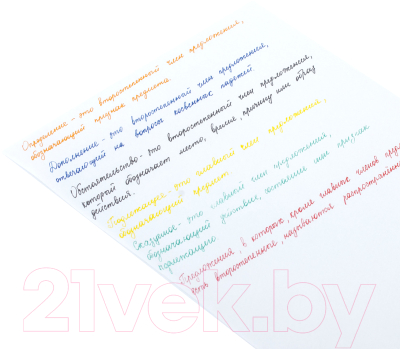 Определение - это второстепенный член предложения,
обозначающий признак предмета.
Дополнение - это второстепенный член предложения,
отвечающий на вопросы косвенных падежей.
Обстоятельство - это второстепенный член предложения,
который обозначает место, время, причину или образ
действия.
Подлежащее - это главный член предложения,
обозначающий предмет.
Сказуемое - это главный член предложения,
обозначающий действие, состояние или признак
подлежащего
Предложения, в которых кроме главных членов
есть второстепенные, называются
21vek.by